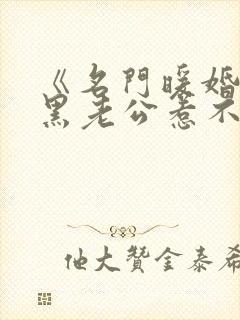 《名门暖婚
黑老公惹不
他大赞金泰希